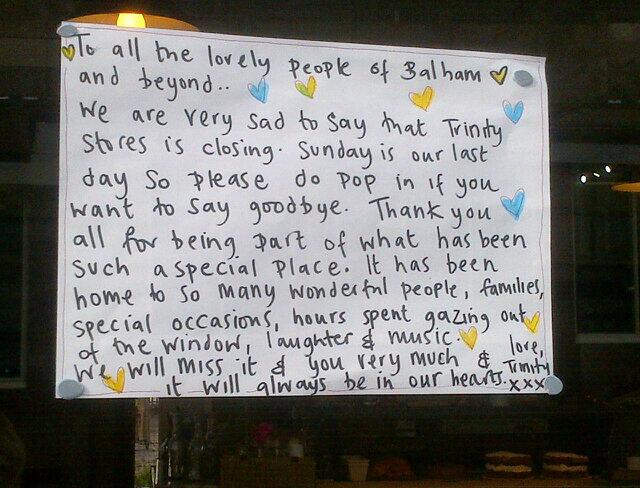 To all the lovely people of Balham
and beyond..
We are very sad to say that Trinity
Stores is closing. Sunday is our last
day so please do pop in if you
want to say goodbye. Thank you
all for being part of what has been
such a special place. It has been
home to so many wonderful people, families,
special occasions, hours spent gazing out
of the window, laughter & music.
We will miss it & you very much &
it will always be in our hearts.
love,
Trinity
xxx